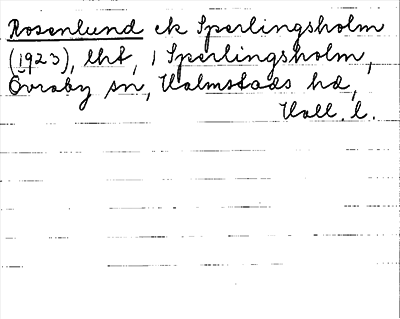 Rosenlund ek Sperlingsholm
(1923), lht, 1 Sperlingsholm,
Övraby sn, Halmstads hd,
Hall. l.